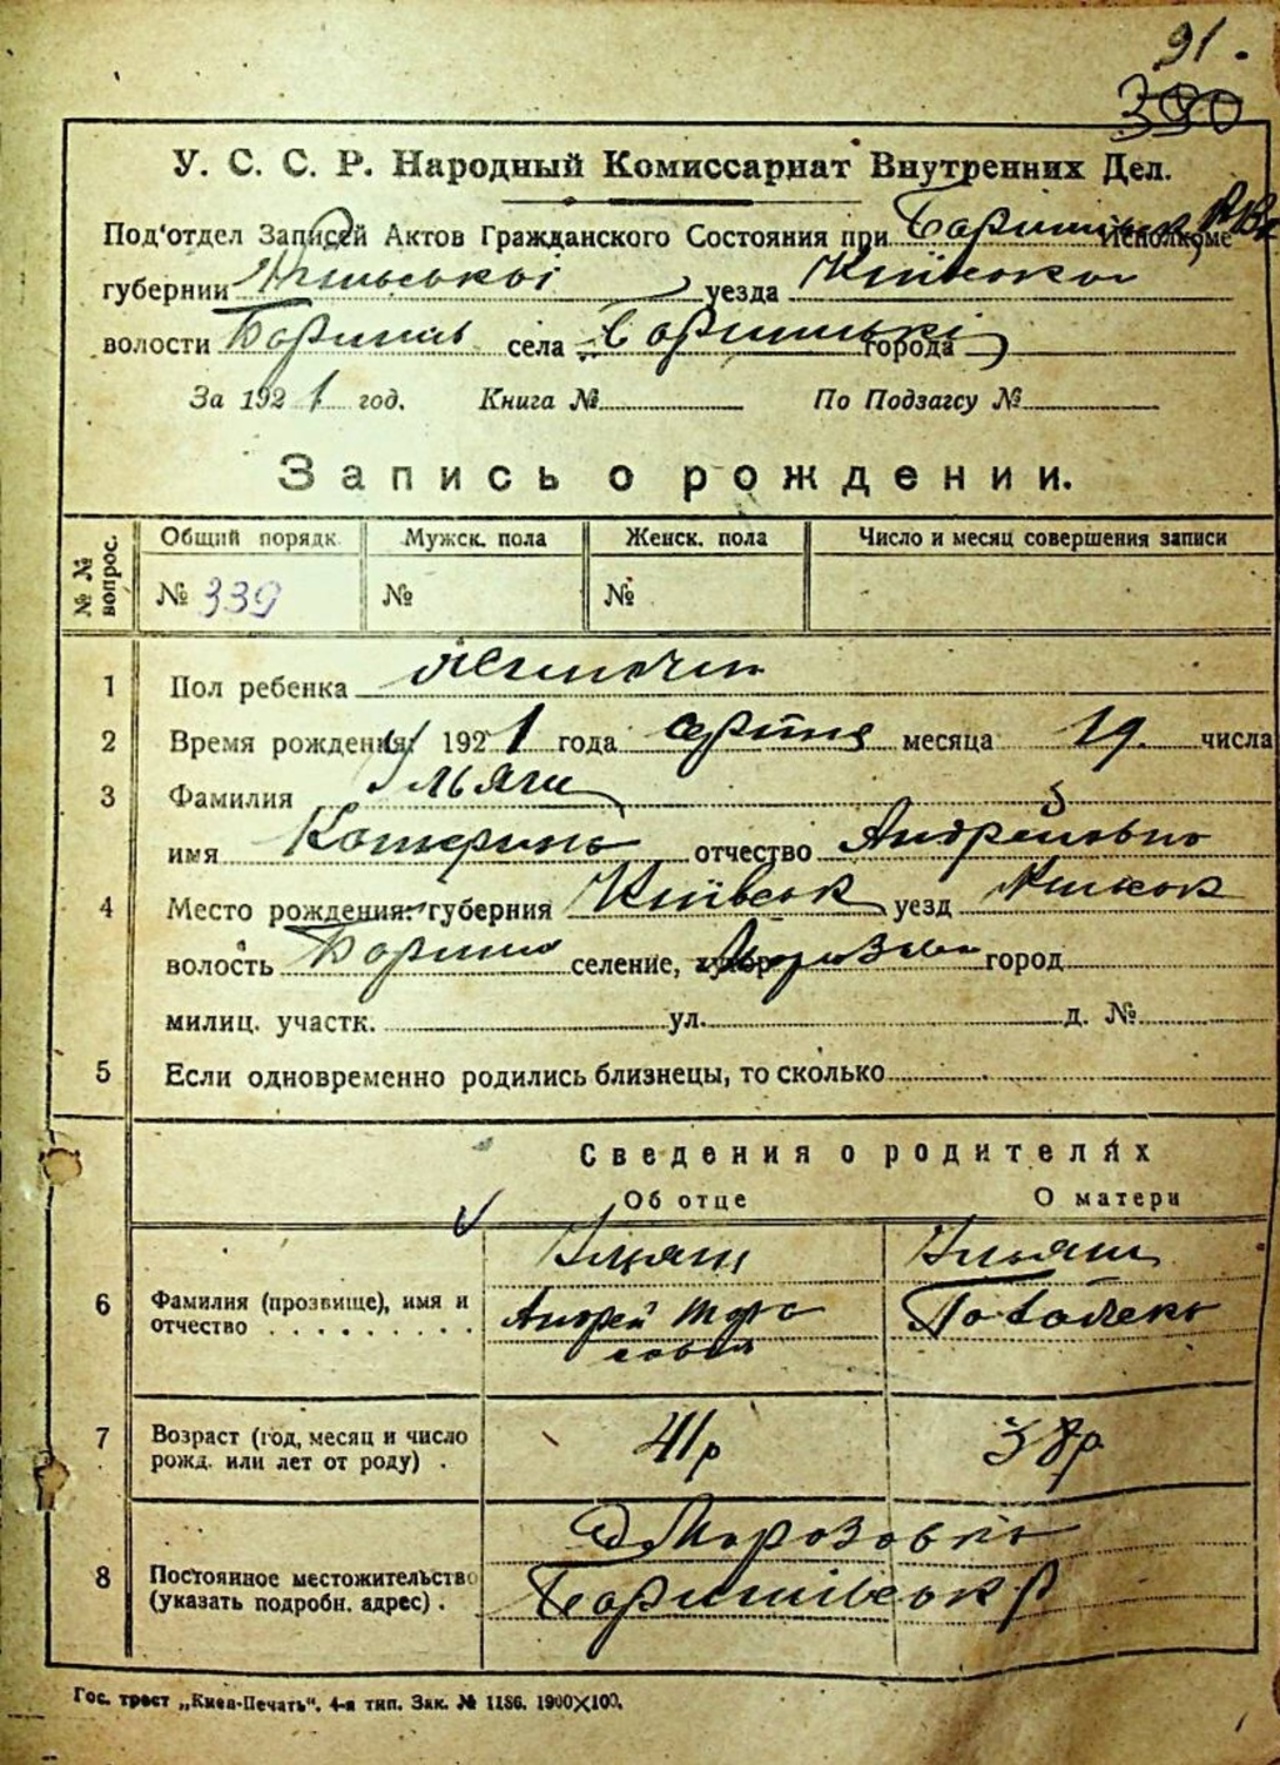 91.
390
У. С. С. Р. Народный Комиссариат Внутренних Дел.
Под'отдел Записей Актов Гражданского Состояния при Исполкоме
губернии уезда
волости Баришів села города
За 1921 год. Книга № По Подзагсу №
Запись о рождении.
№ № вопрос. Общий порядк. Мужск. пола Женск. пола Число и месяц совершения записи
№ 339 № №
1 Пол ребенка
2 Время рождения: 1921 года серпня месяца 19. числа
3 Фамилия Ільяш
имя Катерина отчество Андрейовна
4 Место рождения: губерния Київськ уезд
волость селение, хутор город
милиц. участк. ул. д. №
5 Если одновременно родились близнецы, то сколько
Сведения о родителях
Об отце О матери
Ильяш Ильяш
6 Фамилия (прозвище), имя и Андрей
отчество
7 Возраст (год, месяц и число 41 р 38 р
рожд. или лет от роду) .
с. Морозовка
8 Постоянное местожительство Баришівськ р
(указать подробн. адрес) .
Гос. трест „Киев-Печать“. 4-я тип. Зак. № 1186. 1900×100.